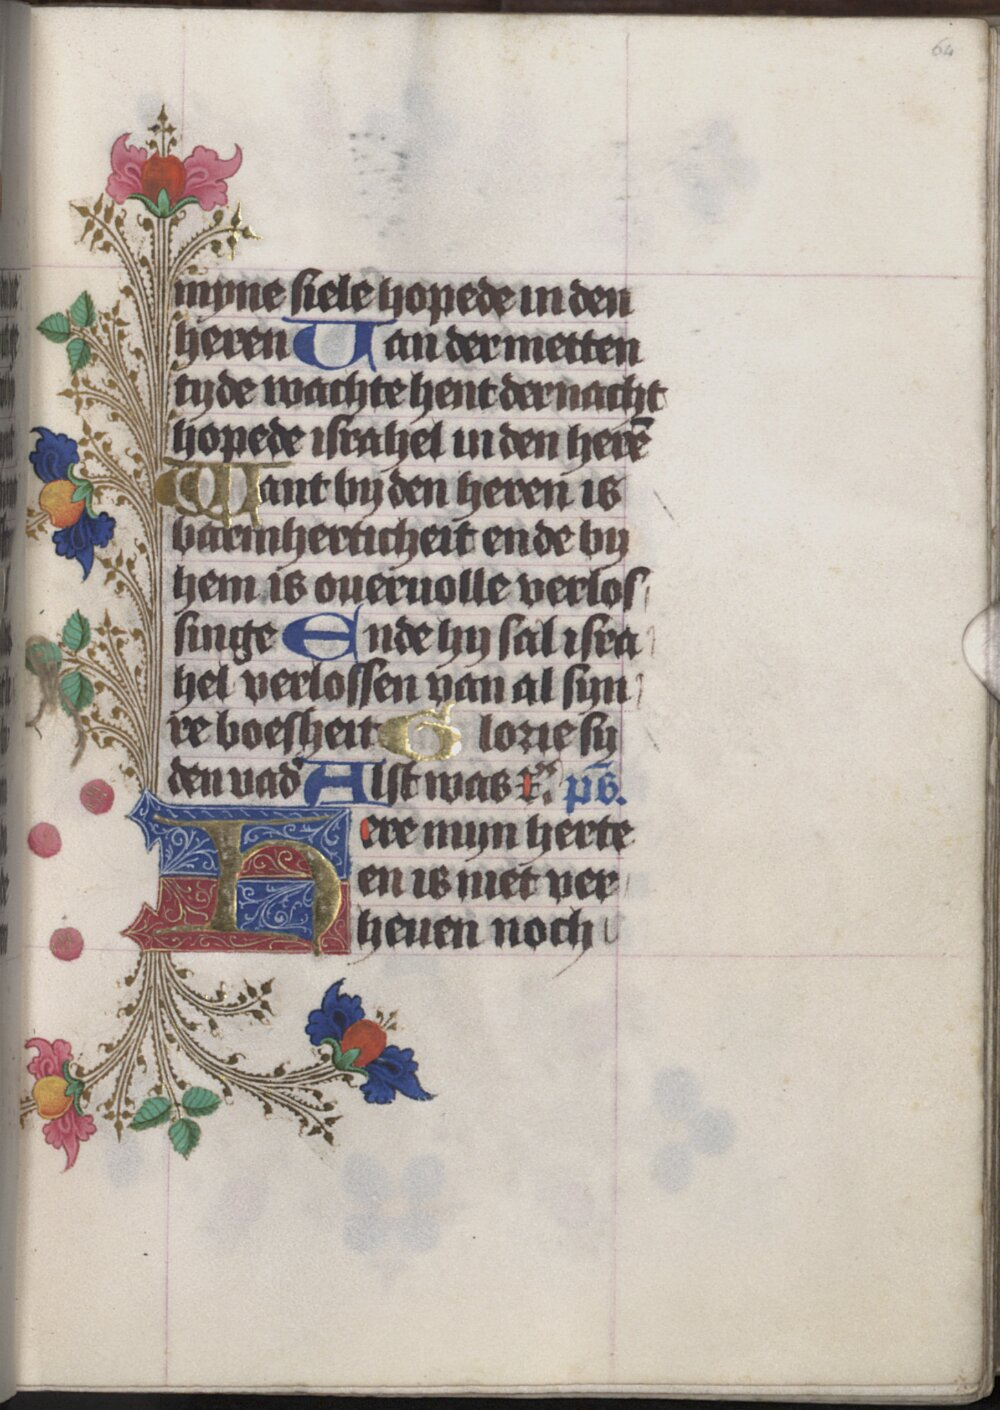 64
myne siele hopede in den
heren Uan der metten
tyde wachte hent der nacht
hopede israhel in den herē
Want by den heren is
barmherticheit ende by
hem is oueruolle verlos
singe Ende hy sal isra
hel verlossen van al syn
re boesheit Glorie sy
den vad Alst was ps̄.
Here myn herte
en is niet ver
heuen noch